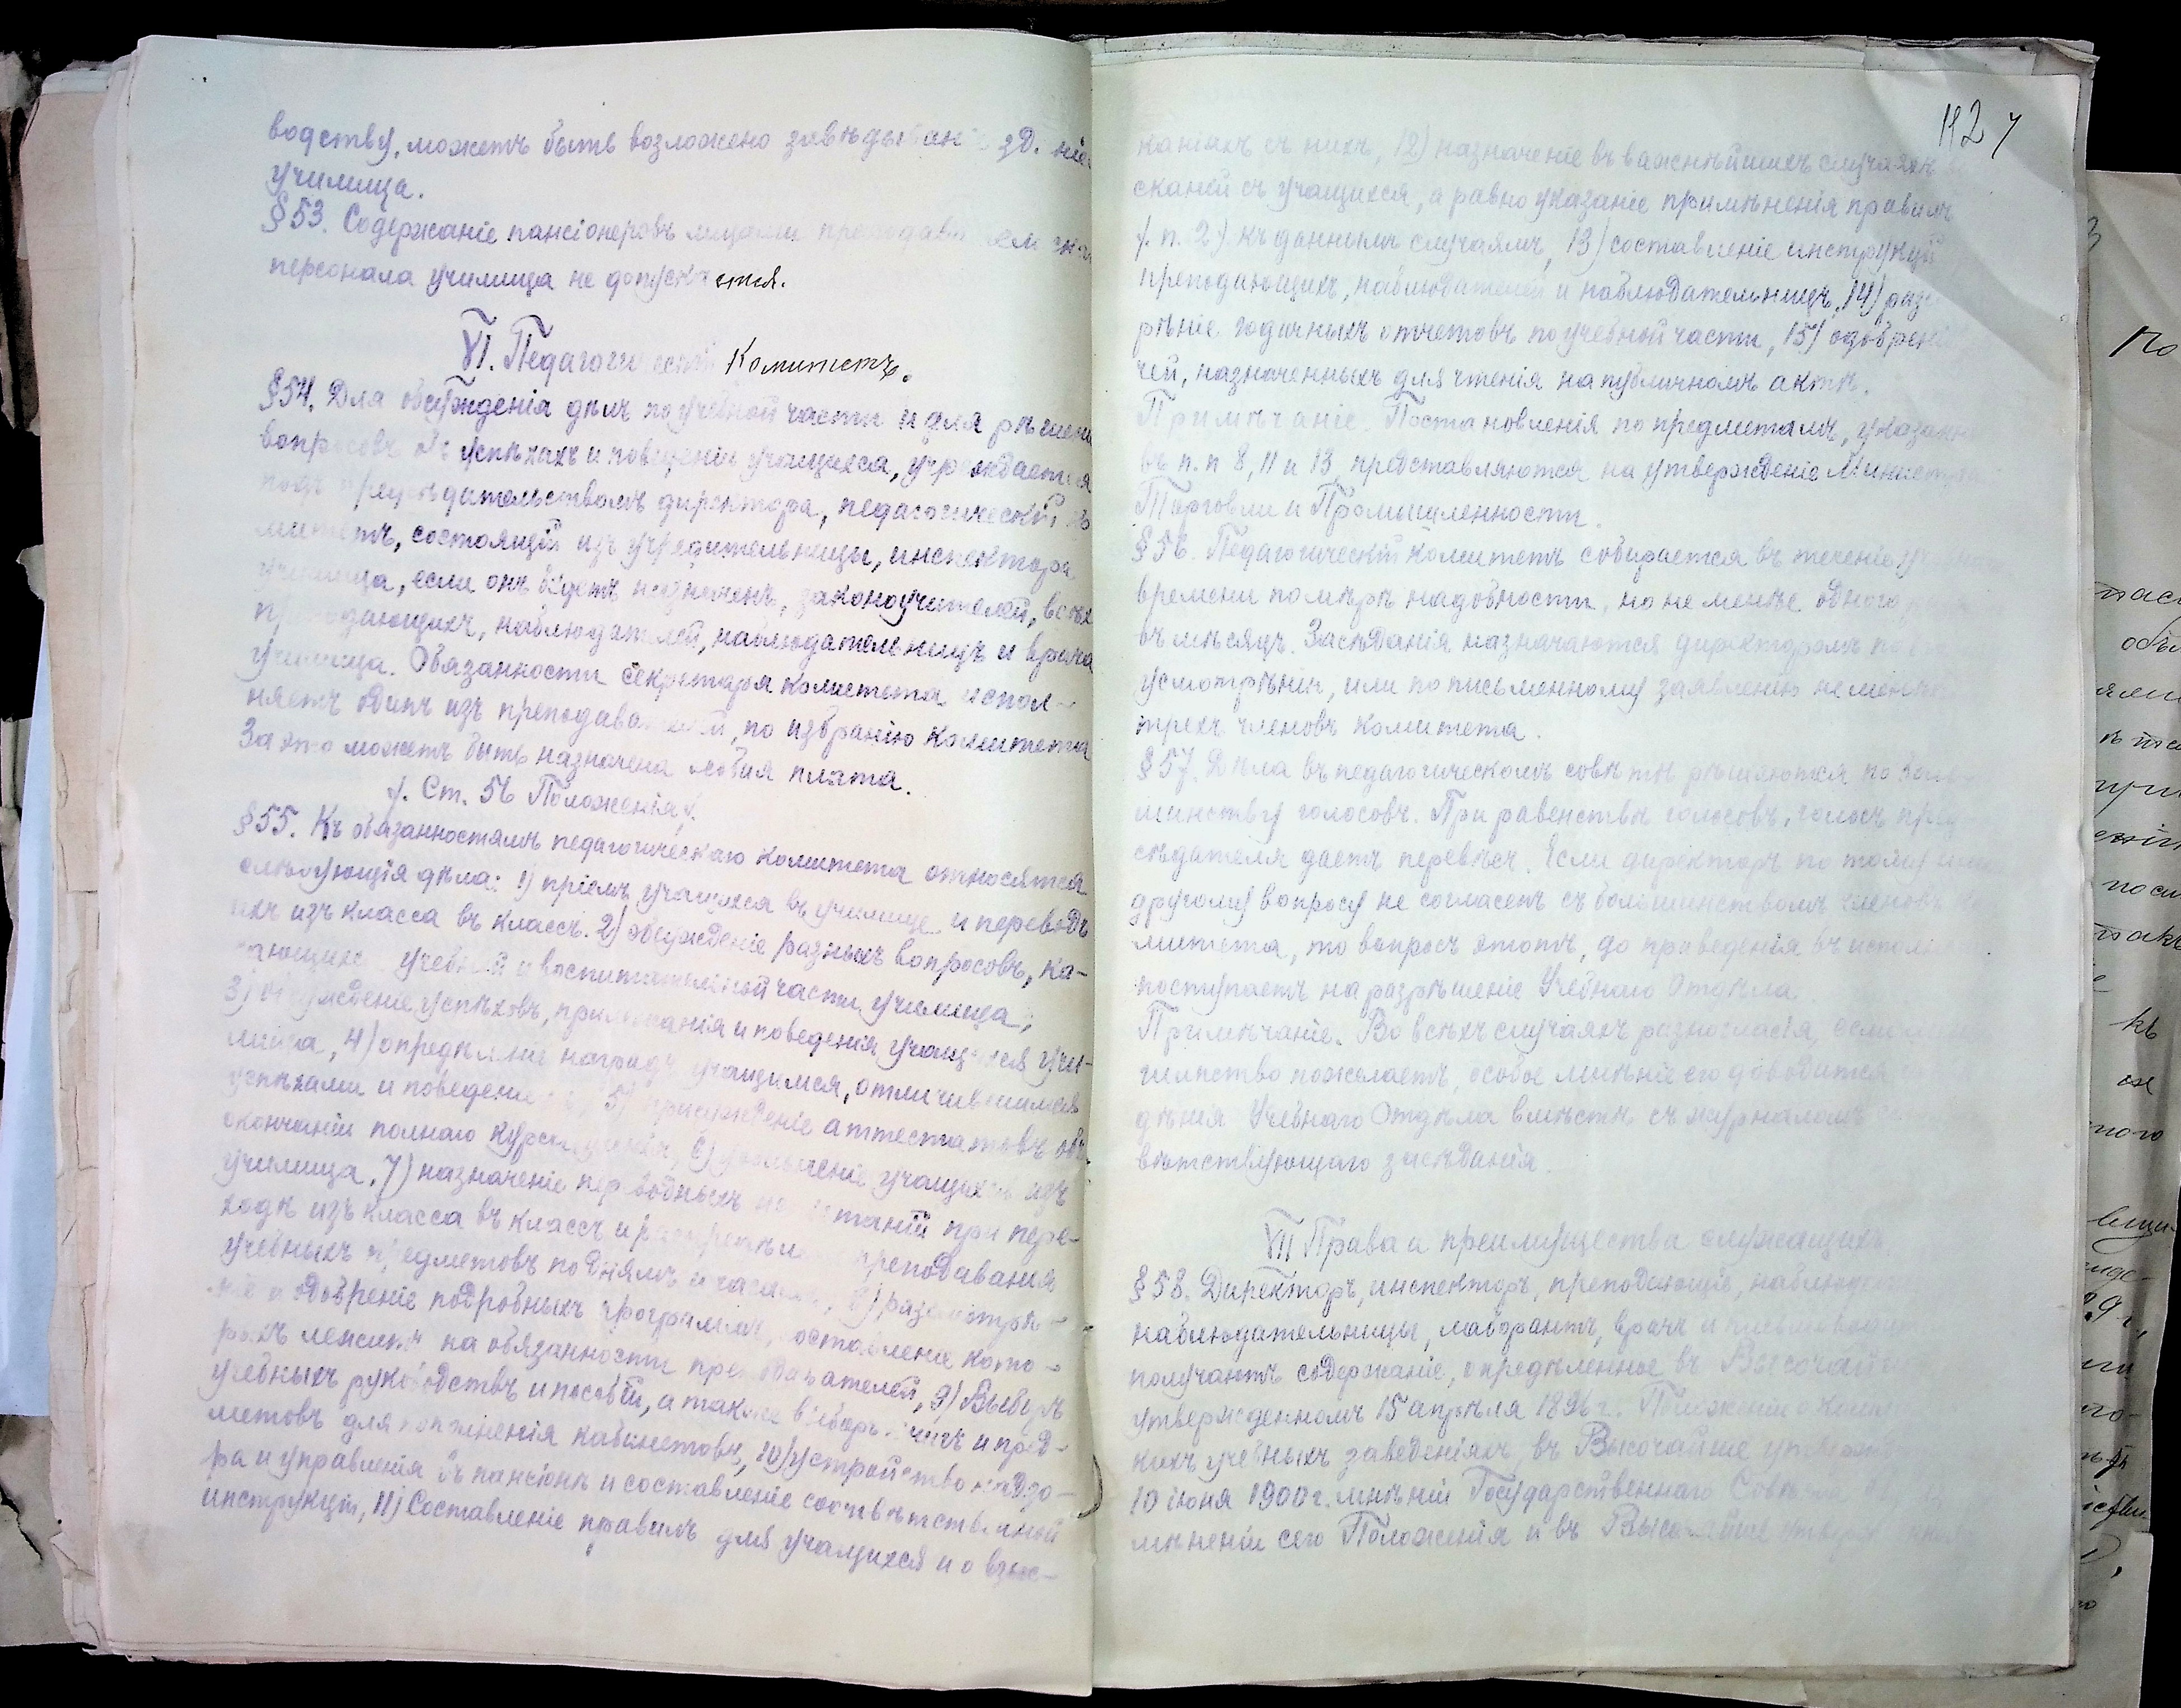 водству, можетъ быть возложено завѣдыван
училища.
§ 53. Содержаніе пансіонеровъ лицами
персонала училища не допускается.
VI. Педагогическій Комитетъ.
§ 54. Для обсужденія дѣлъ по учебной части и для рѣшені
вопросовъ объ успѣхахъ и поведеніи учащихся, учреждается
подъ предсѣдательствомъ директора, педагогическій ко
митетъ, состоящій изъ учредительницы, инспектора
училища, если онъ будетъ назначенъ, законоучителей, всѣхъ
преподающихъ, наблюдателей, наблюдательницъ и врача
училища. Обязанности секретаря комитета испол-
няетъ одинъ изъ преподавателей, по избранію комитета
За это можетъ быть назначена особая плата.
/. Ст. 56 Положенія/.
§ 55. Къ обязанностямъ педагогическаго комитета относятся
слѣдующія дѣла: 1) пріемъ учащихся въ училище и переводъ
ихъ изъ класса въ классъ. 2) обсужденіе разныхъ вопросовъ, ка-
сающихся учебной и воспитательной части училища;
3) обсужденіе успѣховъ, прилежанія и поведенія учащихся учи-
лища, 4) опредѣленіе наградъ учащимся, отличившимся
успѣхами и поведеніемъ, 5) присужденіе аттестатовъ объ
окончаніи полнаго курса училища, 6) увольненіе учащихся изъ
училища. 7) назначеніе переводныхъ испытаній при пере-
ходѣ изъ класса въ классъ и распредѣленіе преподаванія
учебныхъ предметовъ по днямъ и часамъ, 8) разсмотрѣ-
ніе и одобреніе подробныхъ программъ, составленіе кото-
рыхъ лежитъ на обязанности преподавателей, 9) Выборъ
учебныхъ руководствъ и пособій, а также выборъ книгъ и пред-
метовъ для пополненія кабинетовъ, 10) устройство надзо-
ра и управленія въ пансіонѣ и составленіе соотвѣтственной
инструкціи, 11) Составленіе правилъ для учащихся и о взыс-
112
каніяхъ съ нихъ, 12) назначеніе въ важнѣйшихъ случаяхъ
сканій съ учащихся, а равно указаніе примѣненія правилъ
/. п. 2/. къ даннымъ случаямъ, 13) составленіе инструкцій
преподающихъ, наблюдателей и наблюдательницъ, 14) разс
рѣніе годичныхъ отчетовъ по учебной части, 15) одобрені
чей, назначенныхъ для чтенія на публичномъ актѣ.
Примѣчаніе. Постановленія по предметамъ, указанн
въ п. п 8, 11 и 13, представляются на утвержденіе Министра
Торговли и Промышленности.
§ 56. Педагогическій комитетъ собирается въ теченіе
времени по мѣрѣ надобности, но не менѣе одного
въ мѣсяцъ. Засѣданія назначаются директоромъ по
усмотрѣнію, или по письменному заявленію не менѣе
трехъ членовъ комитета.
§ 57. Дѣла въ педагогическомъ совѣтѣ рѣшаются по боль-
шинству голосовъ. При равенствѣ голосовъ, голосъ пред
сѣдателя даетъ перевѣсъ. Если директоръ по тому или
другому вопросу не согласенъ съ большинствомъ членовъ ко
митета, то вопросъ этотъ, до приведенія въ исполн
поступаетъ на разрѣшеніе Учебнаго Отдѣла.
Примѣчаніе. Во всѣхъ случаяхъ разногласія, если
шинство пожелаетъ, особое мнѣніе его доводится
дѣнія Учебнаго Отдѣла вмѣстѣ съ журналомъ
вѣтствующаго засѣданія.
VII Права и преимущества служащихъ
§ 58. Директоръ, инспекторъ, преподающіе, наблюда
наблюдательницы, лаборантъ, врачъ и
получаютъ содержаніе, опредѣленное въ Высочайше
утвержденномъ 15 апрѣля 1896 г. Положеніи о
кихъ учебныхъ заведеніяхъ, въ Высочайше утвержде
10 іюня 1900 г. мнѣніи Государственнаго Совѣта
мѣненіи сего Положенія и въ Высочайше утвержд